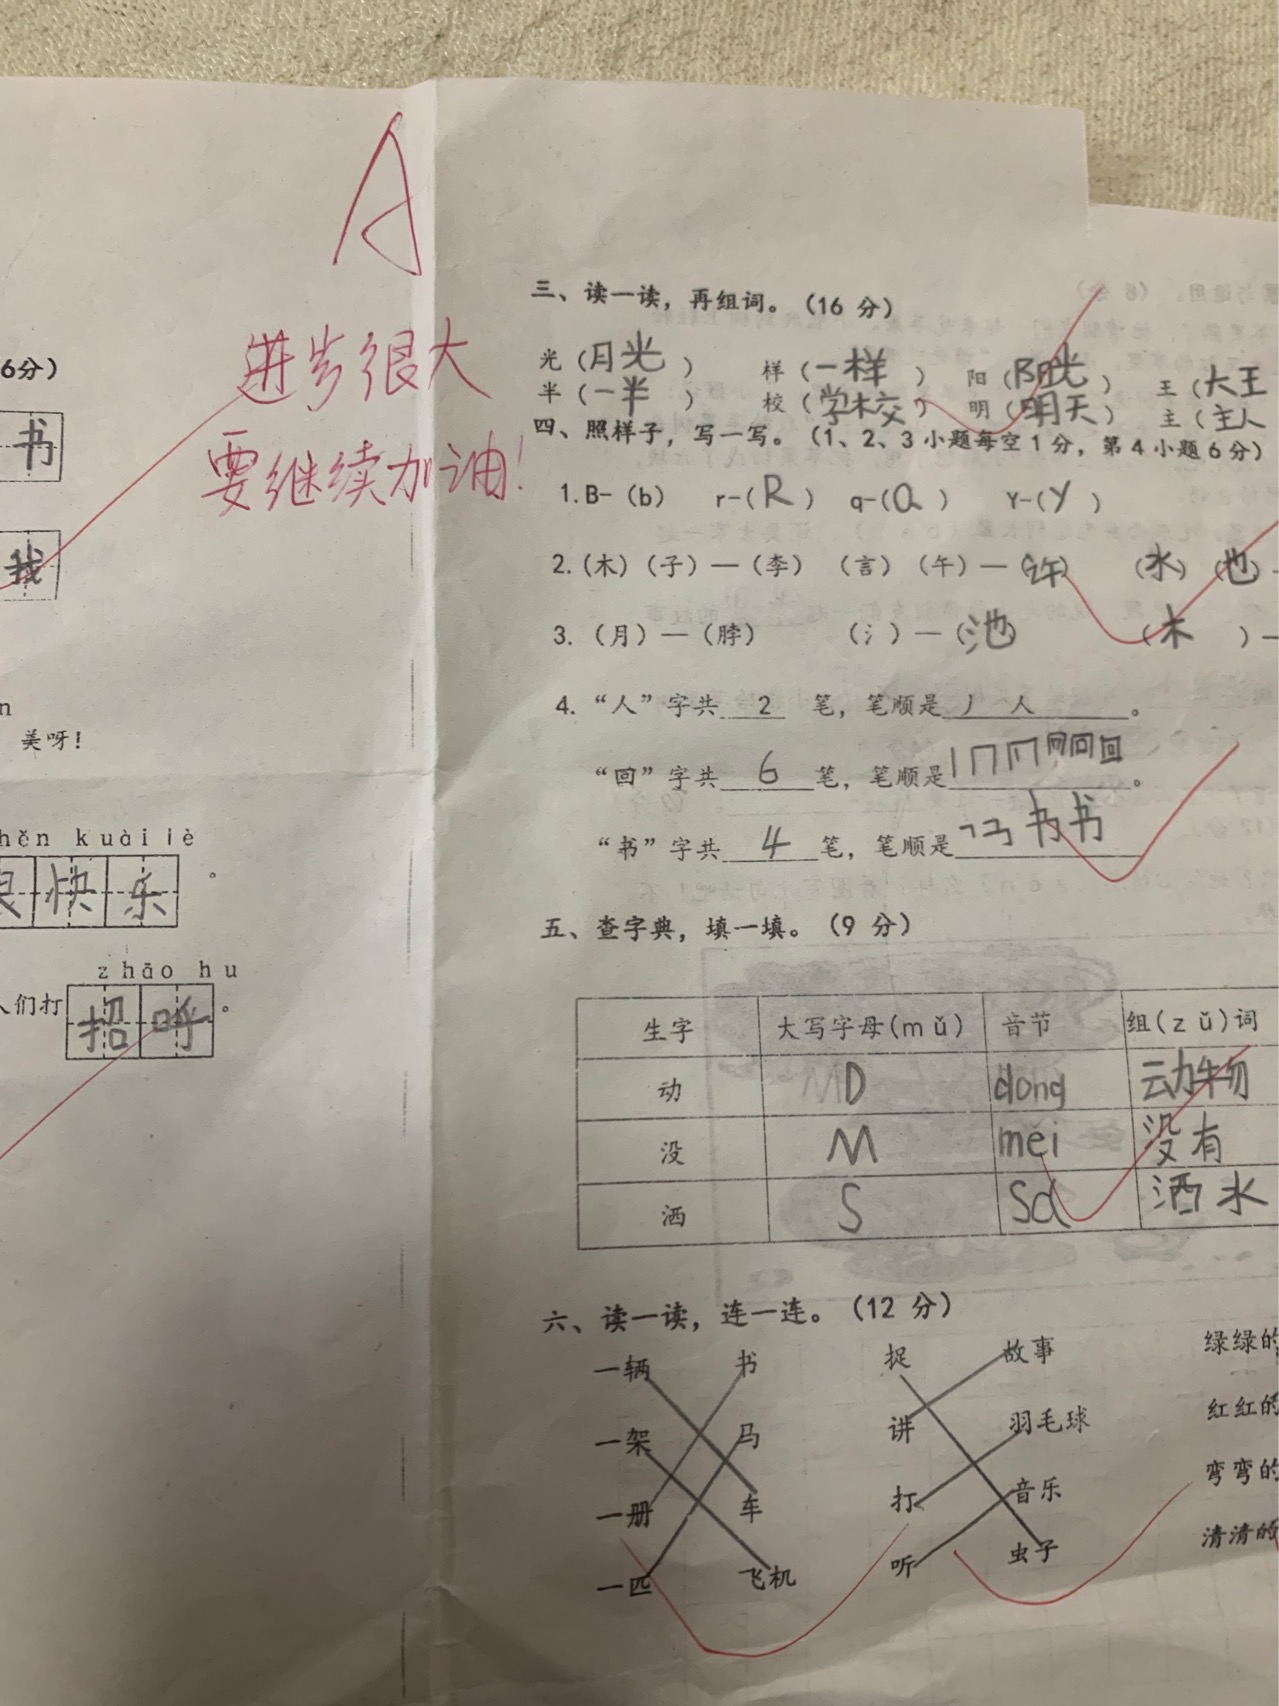 A
进步很大
要继续加油!
6分)
书
我
n
美呀!
hěn kuài lè
很快乐。
zhāo hu
人们打招呼。
三、读一读，再组词。(16 分)
光(月光) 样(一样) 阳(阳光) 王(大王
半(一半) 校(学校) 明(明天) 主(主人
四、照样子，写一写。(1、2、3小题每空1分，第4小题6分)
1.B-(b) r-(R) q-(Q) Y-(y)
2.(木)(子)—(李) (言)(午)—(许) (水)(也)-
3.(月)—(脖) (氵)—(池) (木 )—
4.“人”字共 2 笔，笔顺是丿 人。
“回”字共 6 笔，笔顺是丨冂回。
“书”字共 4 笔，笔顺是书书
五、查字典，填一填。(9 分)
生字 大写字母(mǔ) 音节 组(zǔ)词
动 D dong 动物
没 M méi 没有
洒 S sa 洒水
六、读一读，连一连。(12 分)
一辆 书 捉 故事 绿绿的
一架 马 讲 羽毛球 红红的
一册 车 打 音乐 弯弯的
一匹 飞机 听 虫子 清清的